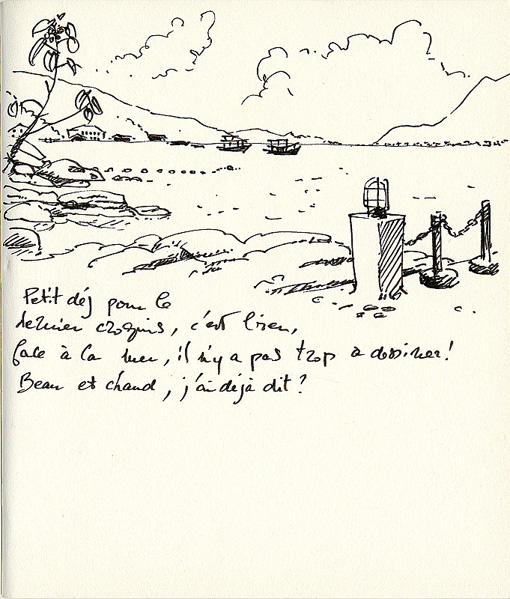 Petit déj pour le
dernier croquis, c'est bien,
face à la mer, il n'y a pas trop à dessiner!
Beau et chaud, j'ai déjà dit?